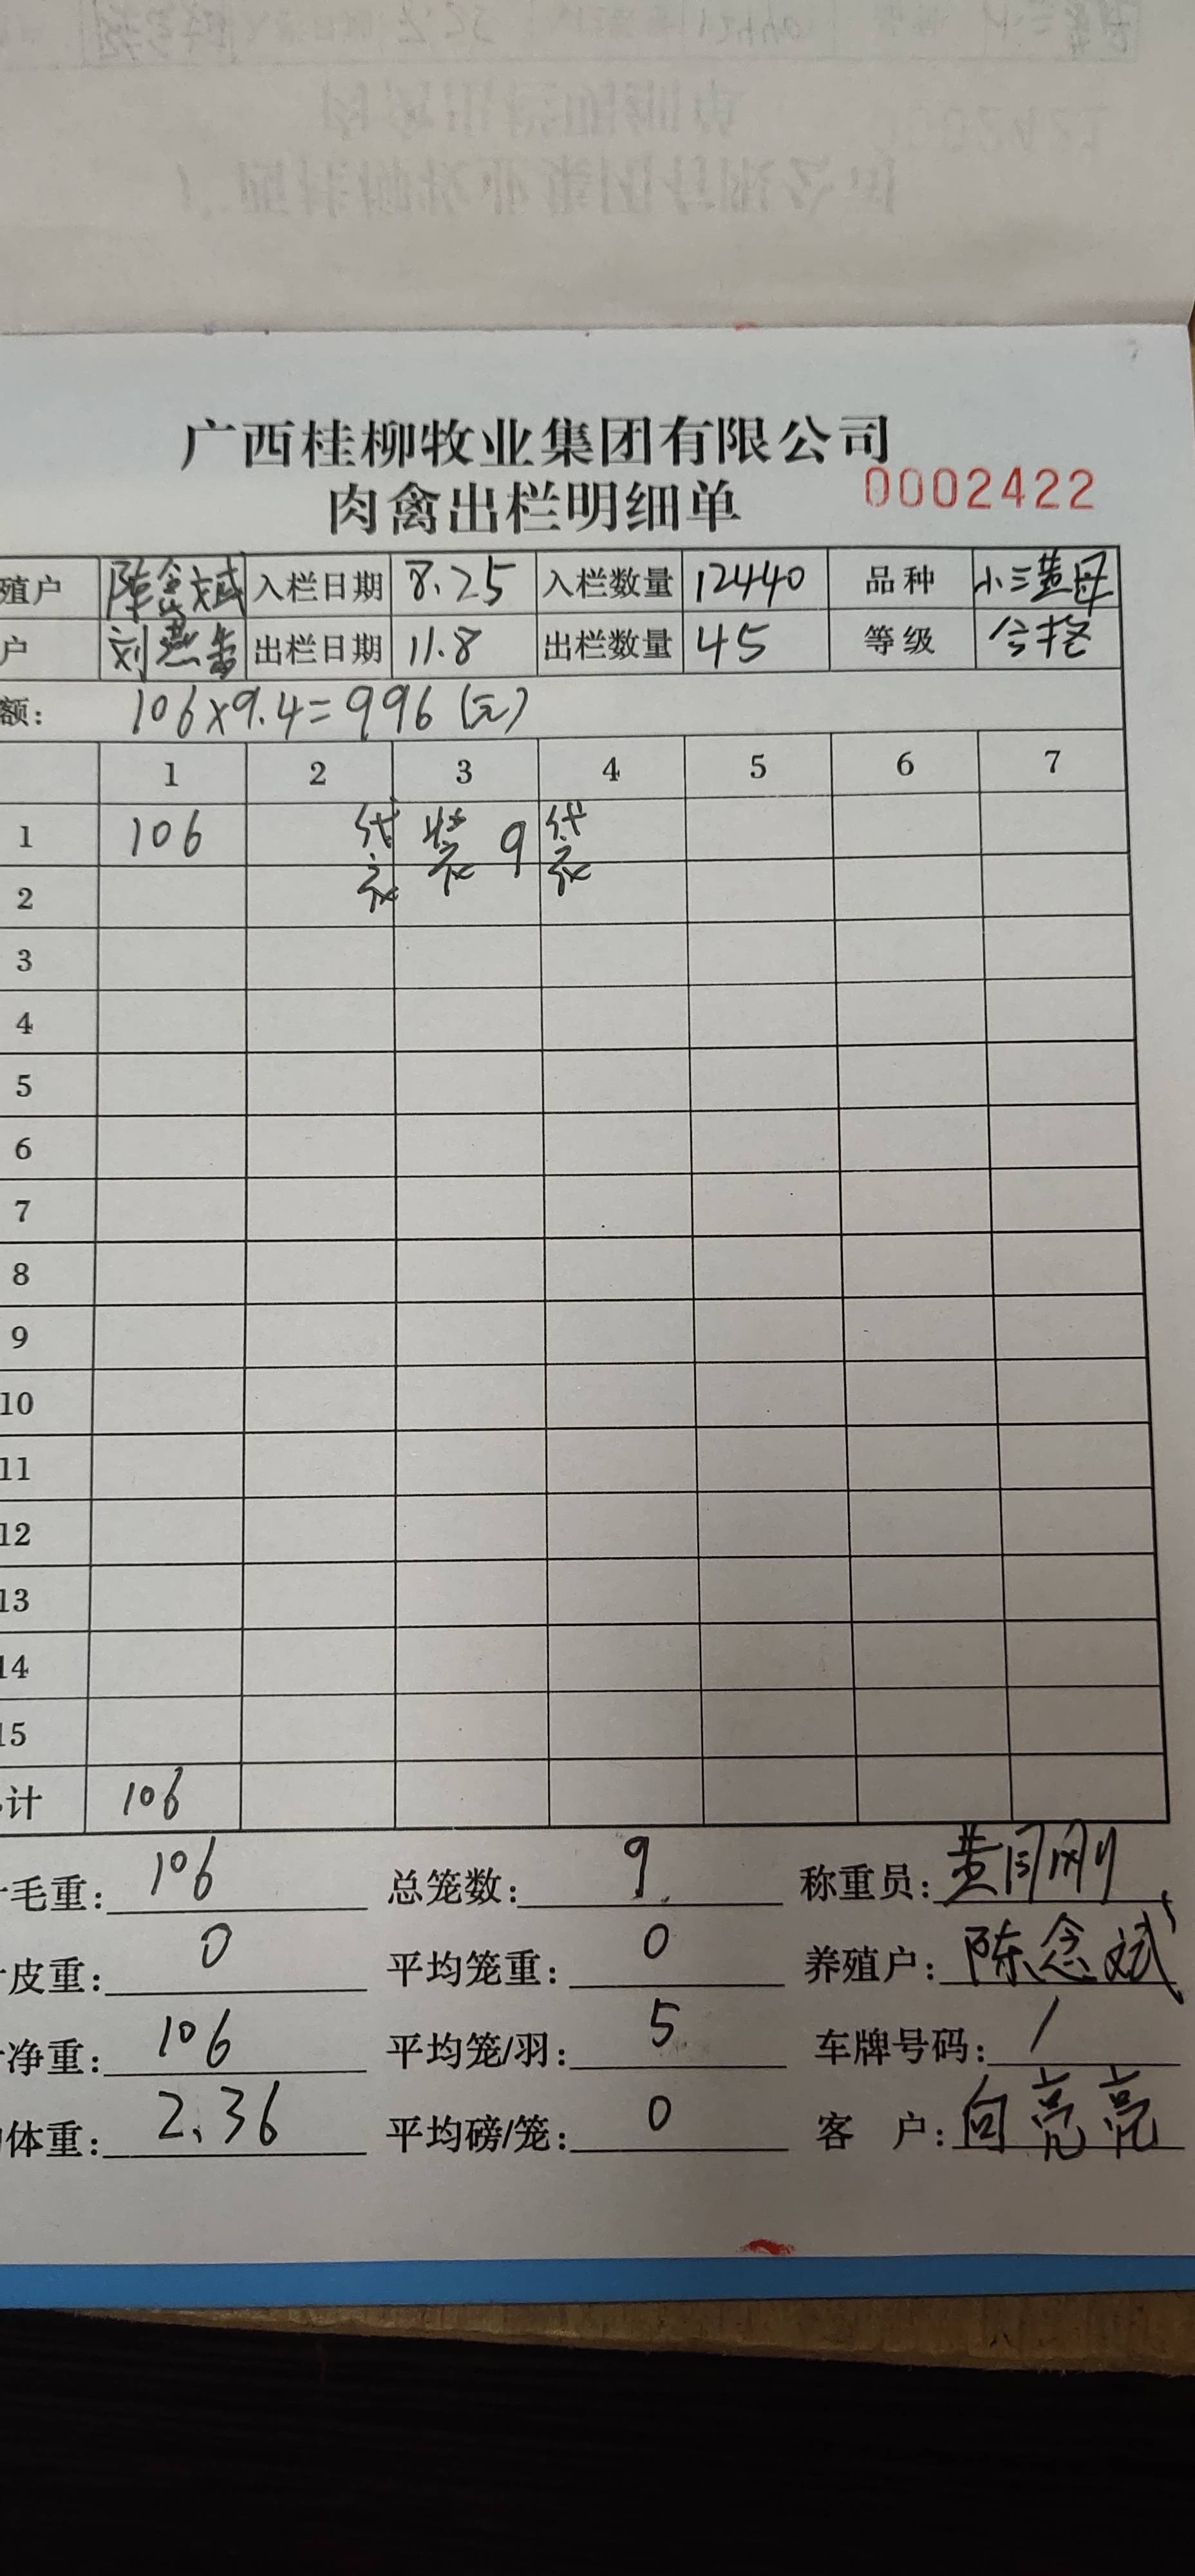 广西桂柳牧业集团有限公司
肉禽出栏明细单 0002422
殖户 陈念斌 入栏日期 8.25 入栏数量 12440 品种 小三黄母
户 刘燕 出栏日期 11.8 出栏数量 45 等级 合格
额: 106×9.4=996(元)
1 2 3 4 5 6 7
1 106 袋装9袋
2
3
4
5
6
7
8
9
10
11
12
13
14
15
计 106
毛重: 106 总笼数: 9 称重员: 黄刚
皮重: 0 平均笼重: 0 养殖户: 陈念斌
净重: 106 平均笼/羽: 5 车牌号码: /
体重: 2.36 平均磅/笼: 0 客 户: 向亮亮